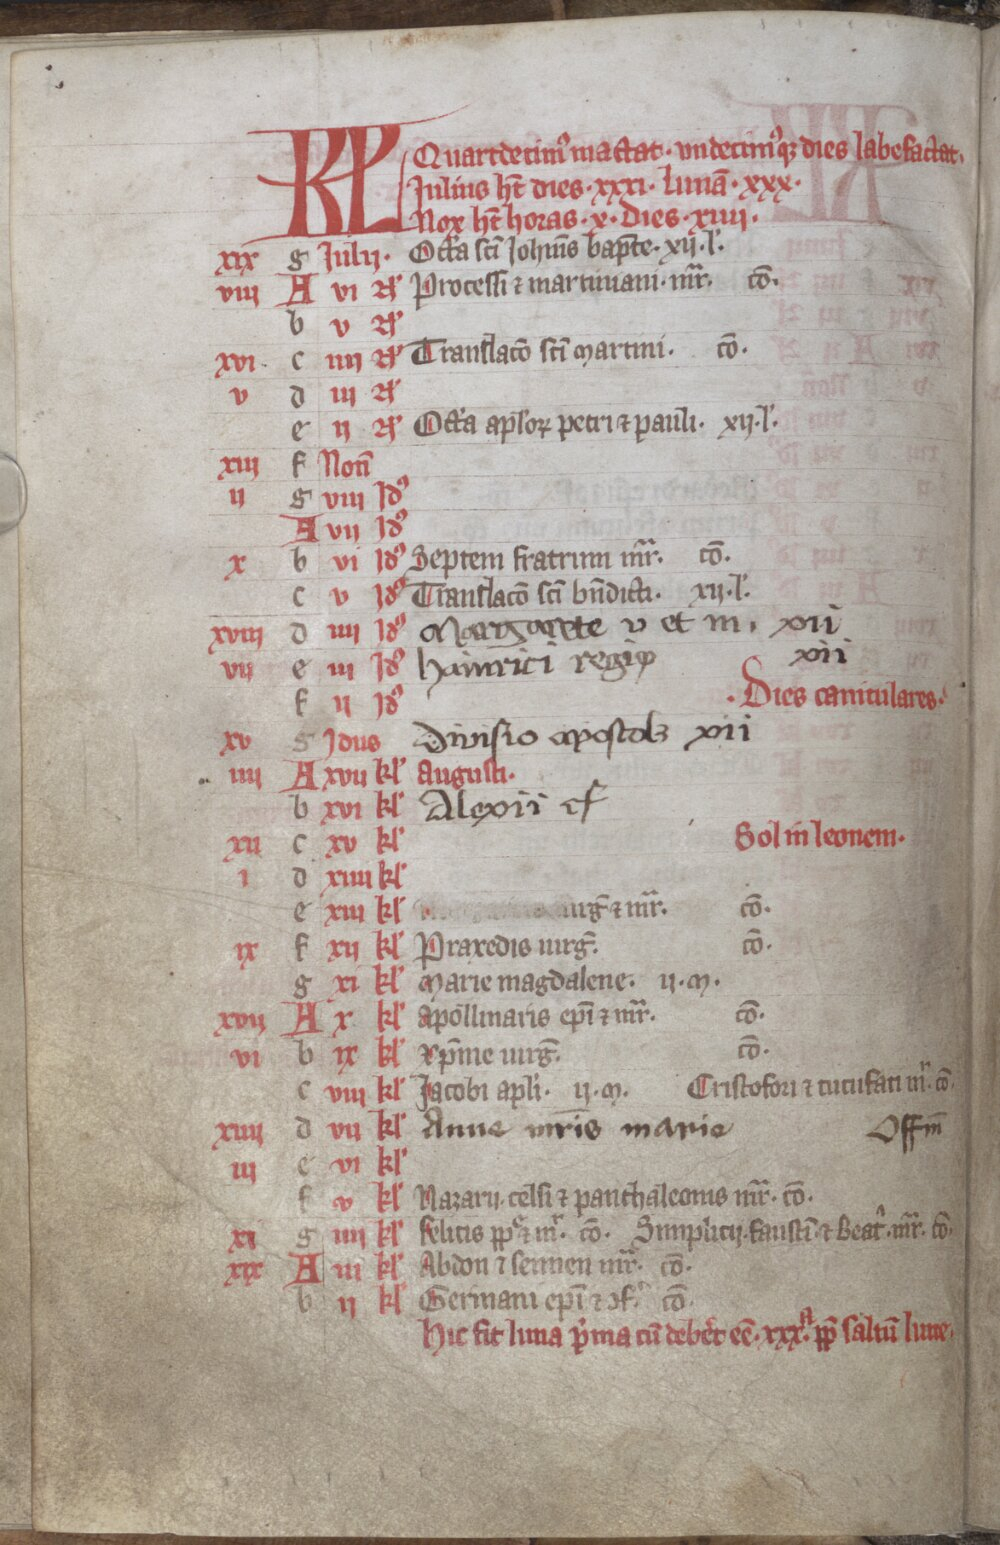 KL Quartdecimꝰ mactat · undecimꝰqꝫ dies labefactat.
Julius ht̄ dies · xxxi · lunā · xxx ·
Nox ht̄ horas · x · Dies · xiiii ·
xix g Julii · Octȃ sc̄i Johīs bapt̄e · xii · l'.
viii A vi N' Processi ⁊ martiniani · mr̄. cō.
b v N'
xvi c iiii N' Translacō sc̄i Martini. cō.
v d iii N'
e ii N' Octȃ apl'oꝝ petri ⁊ pauli. xii · l'.
xiii f Non̄
ii g viii Idꝰ
A vii Idꝰ
x b vi Idꝰ Septem fratrum mr̄. cō.
c v Idꝰ Translacō sc̄i bn̄dicti. xii · l'.
xviii d iiii Idꝰ Margarete v et m. xii
vii e iii Idꝰ hainrici regis xii
f ii Idꝰ · Dies caniculares ·
xv g Idus Divisio apostolꝝ xii
iiii A xvii kl' Augusti.
b xvi kl' Alexii cf
xii c xv kl' Sol in leonem.
i d xiiii kl'
e xiii kl' uirḡ ⁊ mr̄. cō.
ix f xii kl' Praxedis uirḡ. cō.
g xi kl' Marie magdalene. ii · M.
xvii A x kl' Apollinaris ep̄i ⁊ mr̄. cō.
vi b ix kl' Xp̄ine uirḡ. cō.
c viii kl' Jacobi apl'i. ii · M. Cristofori ⁊ cucufati mr̄. cō.
xiiii d vii kl' Anne mr̄is marie Offm̄
iii e vi kl'
f v kl' Nazarii · celsi ⁊ panthaleonis mr̄. cō.
xi g iiii kl' felicis pp̄ ⁊ mr̄. cō. Simplicii · faustī ⁊ Beatˀ. mr̄. cō.
xix A iii kl' Abdon ⁊ sennen mr̄. cō.
b ii kl' Germani ep̄i ⁊ ↄf. cō
Hic fit luna pˀma cū deberˀet eē · xxx.ᵃ pp̄ saltū lune.